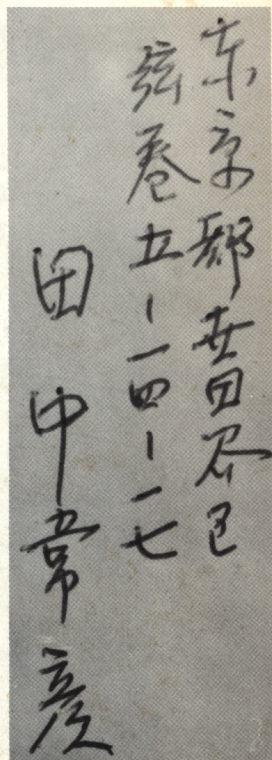 東京都世田谷区
弦巻五-一四-一七
田中常彦